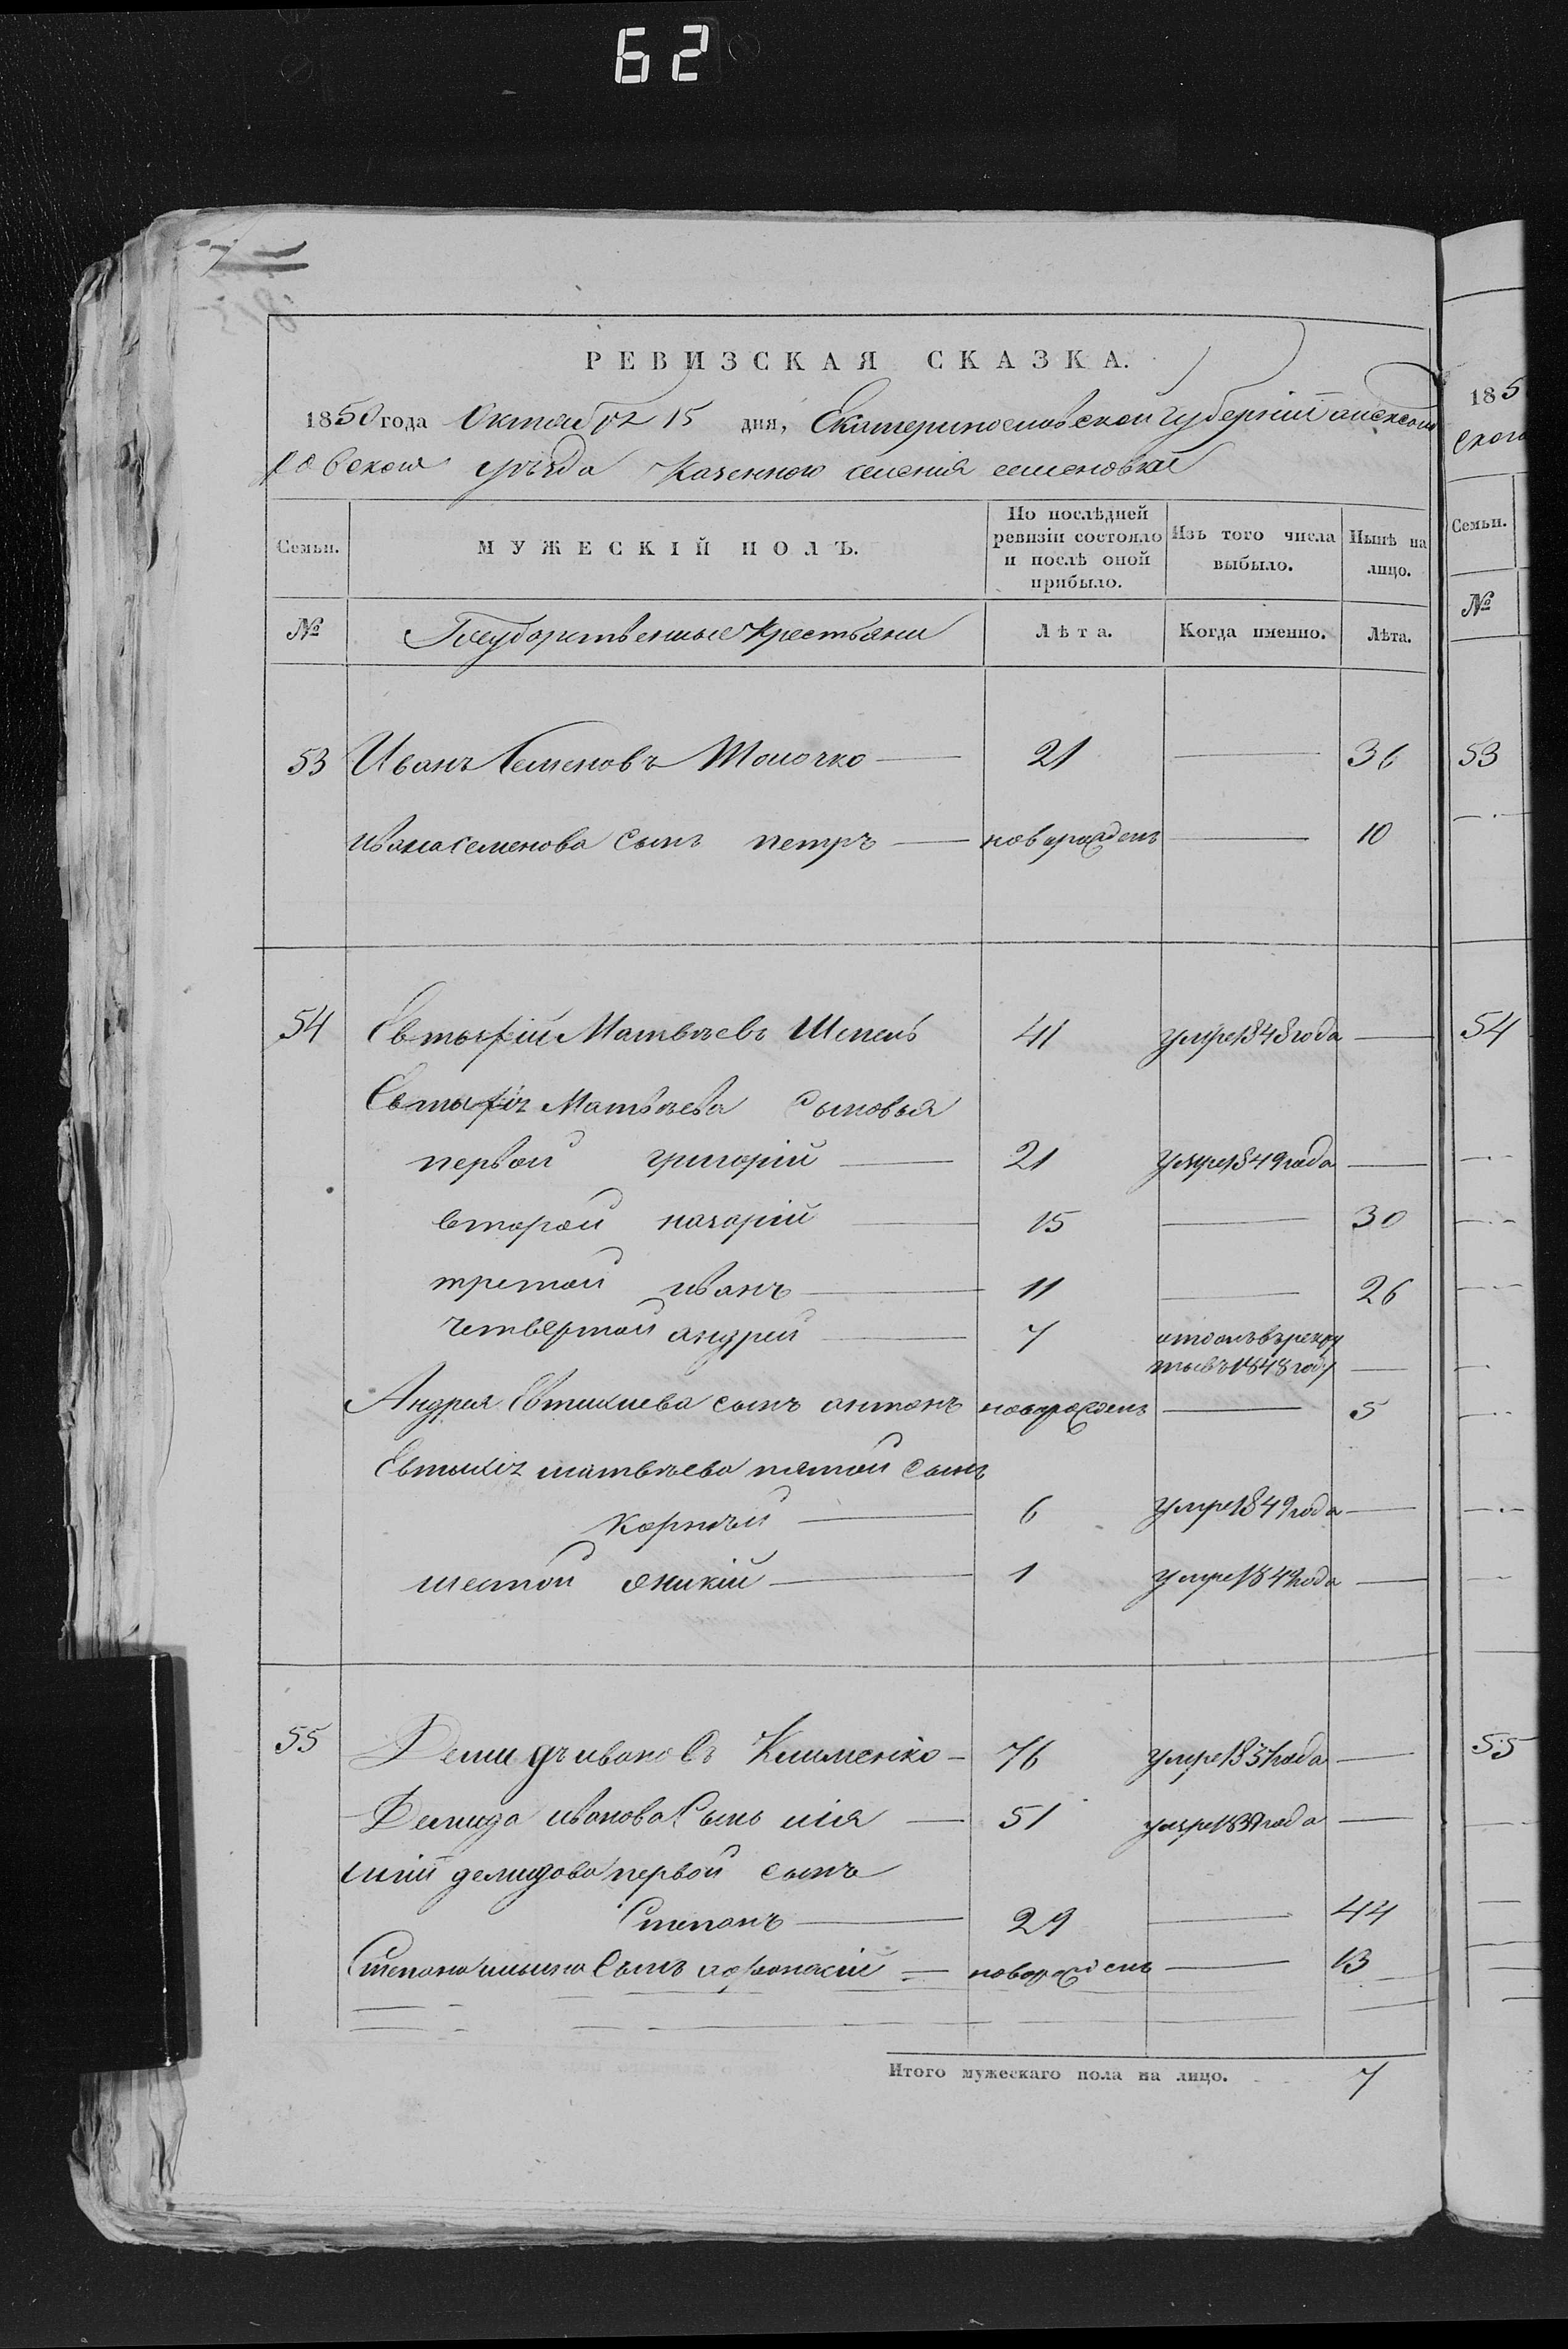 62
РЕВИЗСКАЯ СКАЗКА.
1850 года Октября 15 дня, Екатеринославской губерніи александ
ровскои уѣзда Казенного селенія семеновки
Семьи. МУЖЕСКІЙ ПОЛЪ. По послѣдней ревизіи состояло и послѣ оной прибыло. Изъ того числа выбыло. Нынѣ на лицо.
№ Государственные Крестьяни Лѣта. Когда именно. Лѣта.
53 Иванъ Семеновъ Толочко — 21 — 36
Ивана семенова сынъ петръ — новорожденъ — 10
54 Евтыхій Матвѣевъ Шпель 41 умре 1848 года —
Евтыхія Матвѣева сыновья
первой григорій — 21 умре 1849 года —
второй назарій — 15 — 30
третой иванъ — 11 — 26
четвертой андрей — 7 отданъ въ рекру
ты въ 1848 году —
Андрея Евтихиева сынъ антонъ новорожденъ — 5
Евтыхія матвѣева пятой сынъ
корнѣй — 6 умре 1849 года —
шестой яникій — 1 умре 1849 года —
55 Демидъ ивановъ Клименко — 76 умре 1837 года —
Демида иванова Сынъ илія — 51 умре 1839 года —
иліи демидова первой сынъ
Степанъ — 29 — 44
Степана ильина Сынъ афонасій — новорожденъ — 13
Итого мужескаго пола на лицо. 7
185
ского
Семьи.
№
53
54
55